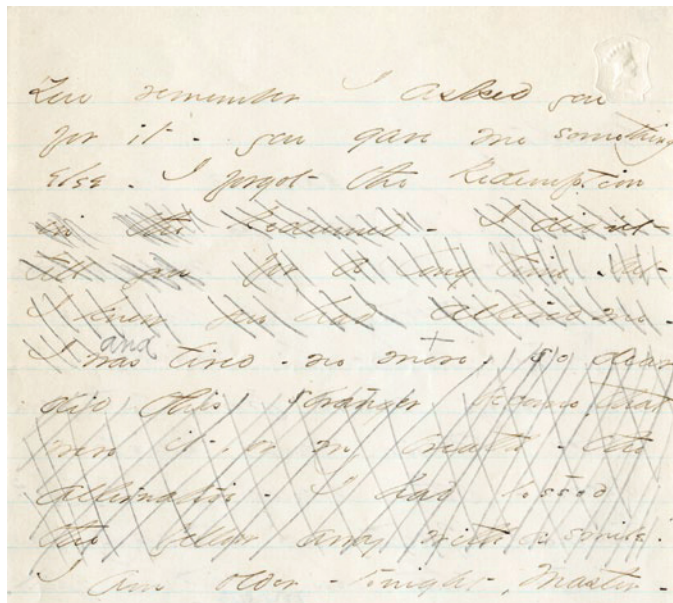 You remember I asked you
for it - you gave me something
else. I forgot the Redemption
in the Redeemed - I did n't
tell you for a long time - but
I knew you had altered me -
I and was tired - no more - + so dear
did this stranger become, that
were it, or my breath - the
alternative - I had tossed
the fellow away with a smile.
I am older - tonight, Master -